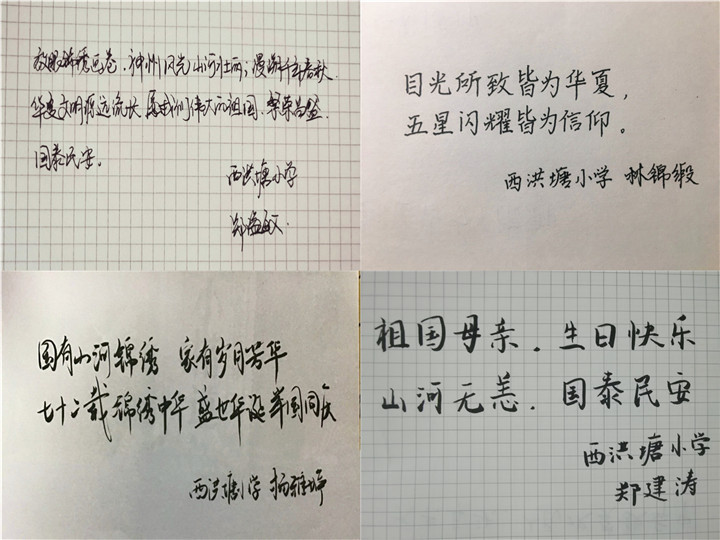 放眼锦绣画卷,神州风光山河壮丽;漫溯千年春秋,
华夏文明源远流长。愿我们伟大的祖国,繁荣昌盛,
国泰民安。
西洪塘小学
郑
目光所致皆为华夏,
五星闪耀皆为信仰。
西洪塘小学 林锦缎
国有山河锦绣 家有岁月芳华
七十二载锦绣中华 盛世华诞举国同庆
西洪塘小学 杨
祖国母亲.生日快乐
山河无恙.国泰民安
西洪塘小学
郑建涛